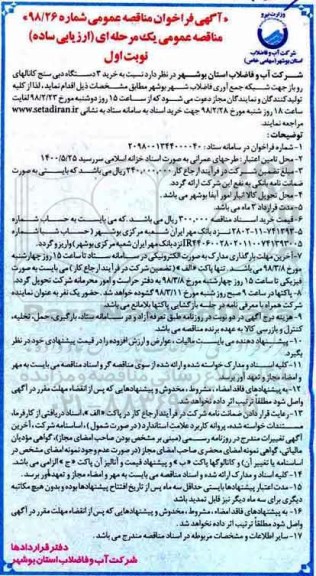 وزارت نیرو
شرکت آب و فاضلاب
استان بوشهر (سهامی خاص)
«آگهی فراخوان مناقصه عمومی شماره ۹۸/۲۶»
مناقصه عمومی یک مرحله ای (ارزیابی ساده)
نوبت اول
شرکت آب و فاضلاب استان بوشهر در نظر دارد نسبت به خرید ۳ دستگاه دبی سنج کانالهای
رو باز جهت شبکه جمع آوری فاضلاب شهر بوشهر مطابق مشخصات ذیل اقدام نماید، لذا از کلیه
تولید کنندگان و نمایندگان مجاز دعوت می شود که از ساعت ۱۵ روز دوشنبه مورخ ۹۸/۲/۲۳ لغایت
ساعت ۱۸ روز شنبه مورخ ۹۸/۲/۲۸ جهت خرید اسناد به سامانه ستاد به نشانی www.setadiran.ir
مراجعه نمایند.
توضیحات :
۱- شماره فراخوان در سامانه ستاد : ۲۰۹۸۰۰۱۳۴۴۰۰۰۰۴۰
۲- محل تامین اعتبار : طرحهای عمرانی به صورت اسناد خزانه اسلامی سررسید ۱۴۰۰/۵/۲۵
۳- مبلغ تضمین شرکت در فرآیند ارجاع کار ۲۴۰,۰۰۰,۰۰۰ ریال می باشد که بایستی به صورت
ضمانت نامه بانکی به نفع این شرکت ارائه گردد.
۴- محل تحویل کالا انبار امور آبفا بوشهر می باشد.
۵- مدت قرارداد ۲ ماه می باشد.
۶- قیمت خرید اسناد مناقصه ۳۰۰,۰۰۰ ریال می باشد که می بایست به حساب شماره
۲۸۰۲-۱۱-۷۴۱۳۹۳-۵ نزد بانک مهر ایران شعبه مرکزی بوشهر ( حساب شبا شماره
نزد بانک مهر ایران شعبه مرکزی بوشهر) واریز گردد.
۷- آخرین مهلت بارگذاری مدارک به صورت الکترونیکی در سامانه ستاد تا ساعت ۱۵ روز چهارشنبه
مورخ ۹۸/۳/۸ می باشد. تنها پاکت «الف» ( تضمین شرکت در فرآیند ارجاع کار ) می بایست به صورت
فیزیکی تا ساعت ۱۵ روز چهارشنبه مورخ ۹۸/۳/۸ به دفتر حراست و امور محرمانه شرکت تحویل گردد.
۸- پاکتها در ساعت ۹ صبح روز شنبه مورخ ۹۸/۳/۱۱ گشوده خواهد شد. حضور یک نفر به عنوان نماینده
شرکت همراه با معرفی نامه در جلسه بازگشایی پاکتها بلامانع می باشد.
۹- هزینه درج آگهی در دو نوبت در روزنامه طبق تعرفه آزاد و در سامانه ستاد، بارگیری، حمل، تخلیه،
کنترل و بازرسی کالا به عهده برنده مناقصه می باشد.
۱۰- پیشنهاد دهنده می بایست مالیات، عوارض و ارزش افزوده را در قیمت پیشنهادی خود در نظر
بگیرد.
۱۱- کلیه اسناد و مدارک خواسته شده و ارائه شده از سوی مناقصه گر و اسناد مناقصه می بایست به مهر
و امضاء مجاز و تعهد آور برسد.
۱۲- به پیشنهادهای فاقد امضاء، مشروط، مخدوش و پیشنهادهایی که پس از انقضاء مهلت مقرر در آگهی
واصل شود مطلقا ترتیب اثر داده نخواهد شد.
۱۳- رعایت قرار دادن ضمانت نامه شرکت در فرآیند ارجاع کار در پاکت « الف »، اسناد دریافتی از کارفرما،
مستندات خواسته شده، پروانه کاربرد علامت استاندارد (در صورت شمول )، اساسنامه شرکت، آخرین
آگهی تغییرات مندرج در روزنامه رسمی (مبنی بر مشخص بودن صاحب امضای مجاز)، گواهی مودیان
مالیاتی، گواهی نمونه امضای محضری صاحب امضای مجاز (در صورت عدم وجود نمونه امضای مجاز در
اساسنامه یا تغییر آن) و کاتالوگها پاکت «ب» و پیشنهاد قیمت و آنالیز آن پاکت «ج» الزامی می باشد.
۱۴- کلیه اسناد و مدارک ارائه شده و اسناد مناقصه می بایست به مهر و امضاء مجاز و تعهد آور برسد.
۱۵- مدت اعتبار پیشنهادها بایستی حداقل سه ماه پس از تاریخ افتتاح پیشنهادها بوده و بدون هیچ مکاتبه
دیگری برای سه ماه دیگر نیز قابل تمدید باشد
۱۶- به پیشنهادهای فاقد امضاء، مشروط، مخدوش و پیشنهادهایی که پس از انقضاء مهلت مقرر در آگهی
واصل شود مطلقا ترتیب اثر داده نخواهد شد.
۱۷- سایر اطلاعات و مشخصات مربوطه در اسناد مناقصه مندرج می باشد.
دفتر قراردادها
شرکت آب و فاضلاب استان بوشهر